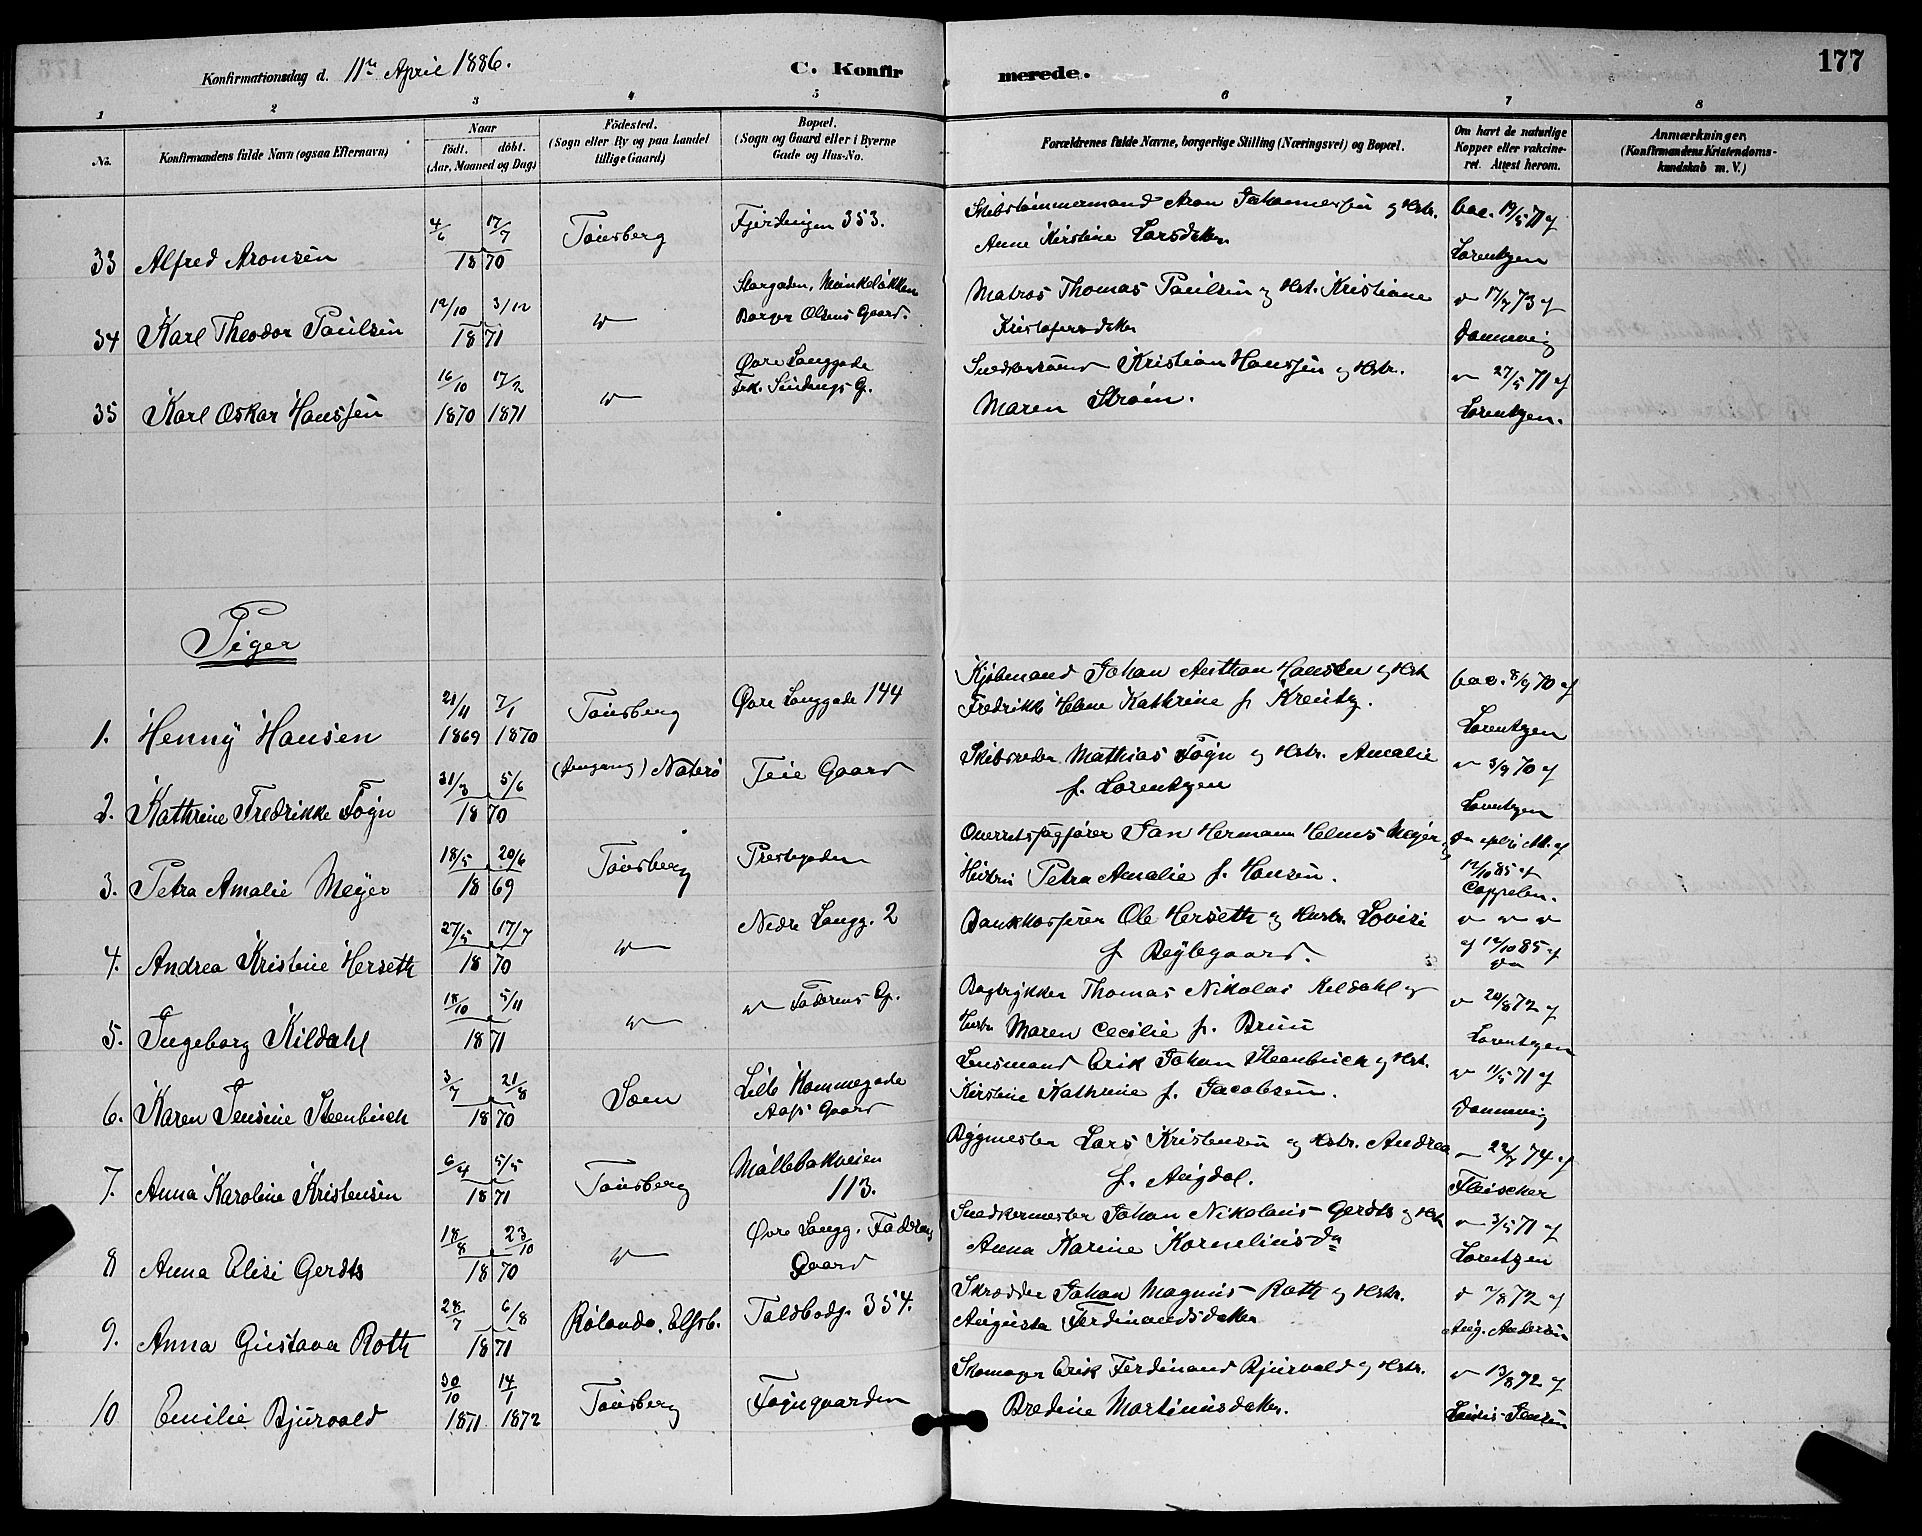 177
Konfirmationsdag d. 11te April 1886.
C. Konfirmerede.
1 2 3 4 5 6 7 8
No.
Konfirmandens fulde Navn (ogsaa Efternavn)
Naar
födt. döbt.
(Aar, Maaned og Dag)
Födested.
(Sogn eller By og paa Landet
tillige Gaard)
Bopæl.
(Sogn og Gaard eller i Byerne
Gade og Hus-No.
Forældrenes fulde Navne, borgerlige Stilling (Næringsvei) og Bopæl.
Om havt de naturlige
Kopper eller vakcine-
ret. Attest herom.
Anmærkninger.
(Konfirmandens Kristendoms-
kundskab m. V.)
33 Alfred Aronsen 4/6 17/7 1870 Tönsberg Fjerdingen 353.
Skibstömmermand Aron Johannessen og Hstr.
Anne Kirstine Larsdatter
vac. 19/5 71 af
Lorentzen
34 Karl Theodor Paulsen 12/10 3/12 1871 "
Storgaden, Munkelökken
Borger Olsens Gaard.
Matros Thomas Paulsen og Hst. Kristiane
Kristofersdatter
" 17/7 73 af
Dannevig
35 Karl Oskar Hanssen 16/10 1870 17/2 1871 "
Øvre Langgade
Frk. Sindings G.
Kristian Hanssen og Hstr.
Maren Ström.
" 27/5 71 af
Lorentzen.
Piger
1. Henny Hansen 21/11 1869 7/1 1870 Tönsberg Øvre Langgade 144
Kjöbmand Johan Anthon Hansen og Hst
Fredrikke Helene Kathrine f. Kreutz.
vac. 8/9 70 af
Lorentzen
2. Kathrine Fredrikke Fögn 31/3 5/6 1870 Nöterö Teie Gaard
Skibsreder Mathias Fögn og Hstr. Amalie
f. Lorentzen
" 3/9 70 af
Lorentzen
3. Petra Amalie Meyer 18/5 20/6 1869 Tönsberg Prestegaden
Overretssagförer Jan Hermann Helmes Meyer og
Hustru Petra Amalie f. Hansen.
12/10 85 af
Cappelen.
4. Andrea Kristine Herseth 27/5 17/7 1870 " Nedre Langg. 2
Bankkasserer Ole Herseth og Hustr. Lovise
f. Beylegaard.
" " "
af 12/10 85 af
Do
5. Ingeborg Kildahl 18/10 5/11 1871 " " Faderens G.
Bogtrykker Thomas Nikolai Kildahl og
Hustr. Maren Cecilie f. Bruu
" 20/8 72 af
Lorentzen
6. Karen Jensine Steenbuch 3/7 21/8 1870 Sæm
Lille Kammegade
Aas Gaard
Lensmand Erik Johan Steenbuch og Hst.
Kirstine Kathrine f. Jacobsen.
" 11/5 71 af
Dannevig
7. Anna Karoline Kristensen 6/4 5/5 1871 Tönsberg
Möllebakveien
113.
Bygmester Lars Kristensen og Hstr. Andrea
f. Aagdal.
" 22/7 74 af
Fleischer
8 Anna Elise Gerdts 18/8 23/10 1870 "
Øvre Langg. Faderens
Gaard
Snedkermester Johan Nikolaus Gerdts og Hst
Anna Karine Korneliusda
" 3/5 71 af
Lorentzen
9. Anna Gustava Roth 28/7 6/8 1871 Rölanda, Elfsb. Toldbodg. 354.
Skrædder Johan Magnus Roth og Hstr.
Augusta Ferdinandsdatter
" 7/8 72 af
Aug. Andersen
10 Emilie Bjurvald 30/10 1871 14/1 1872 Tönsberg Fögngaarden
Skomager Erik Ferdinand Bjurvald og Hstr.
Bredine Martinusdatter.
" 13/8 72 af
Jensen